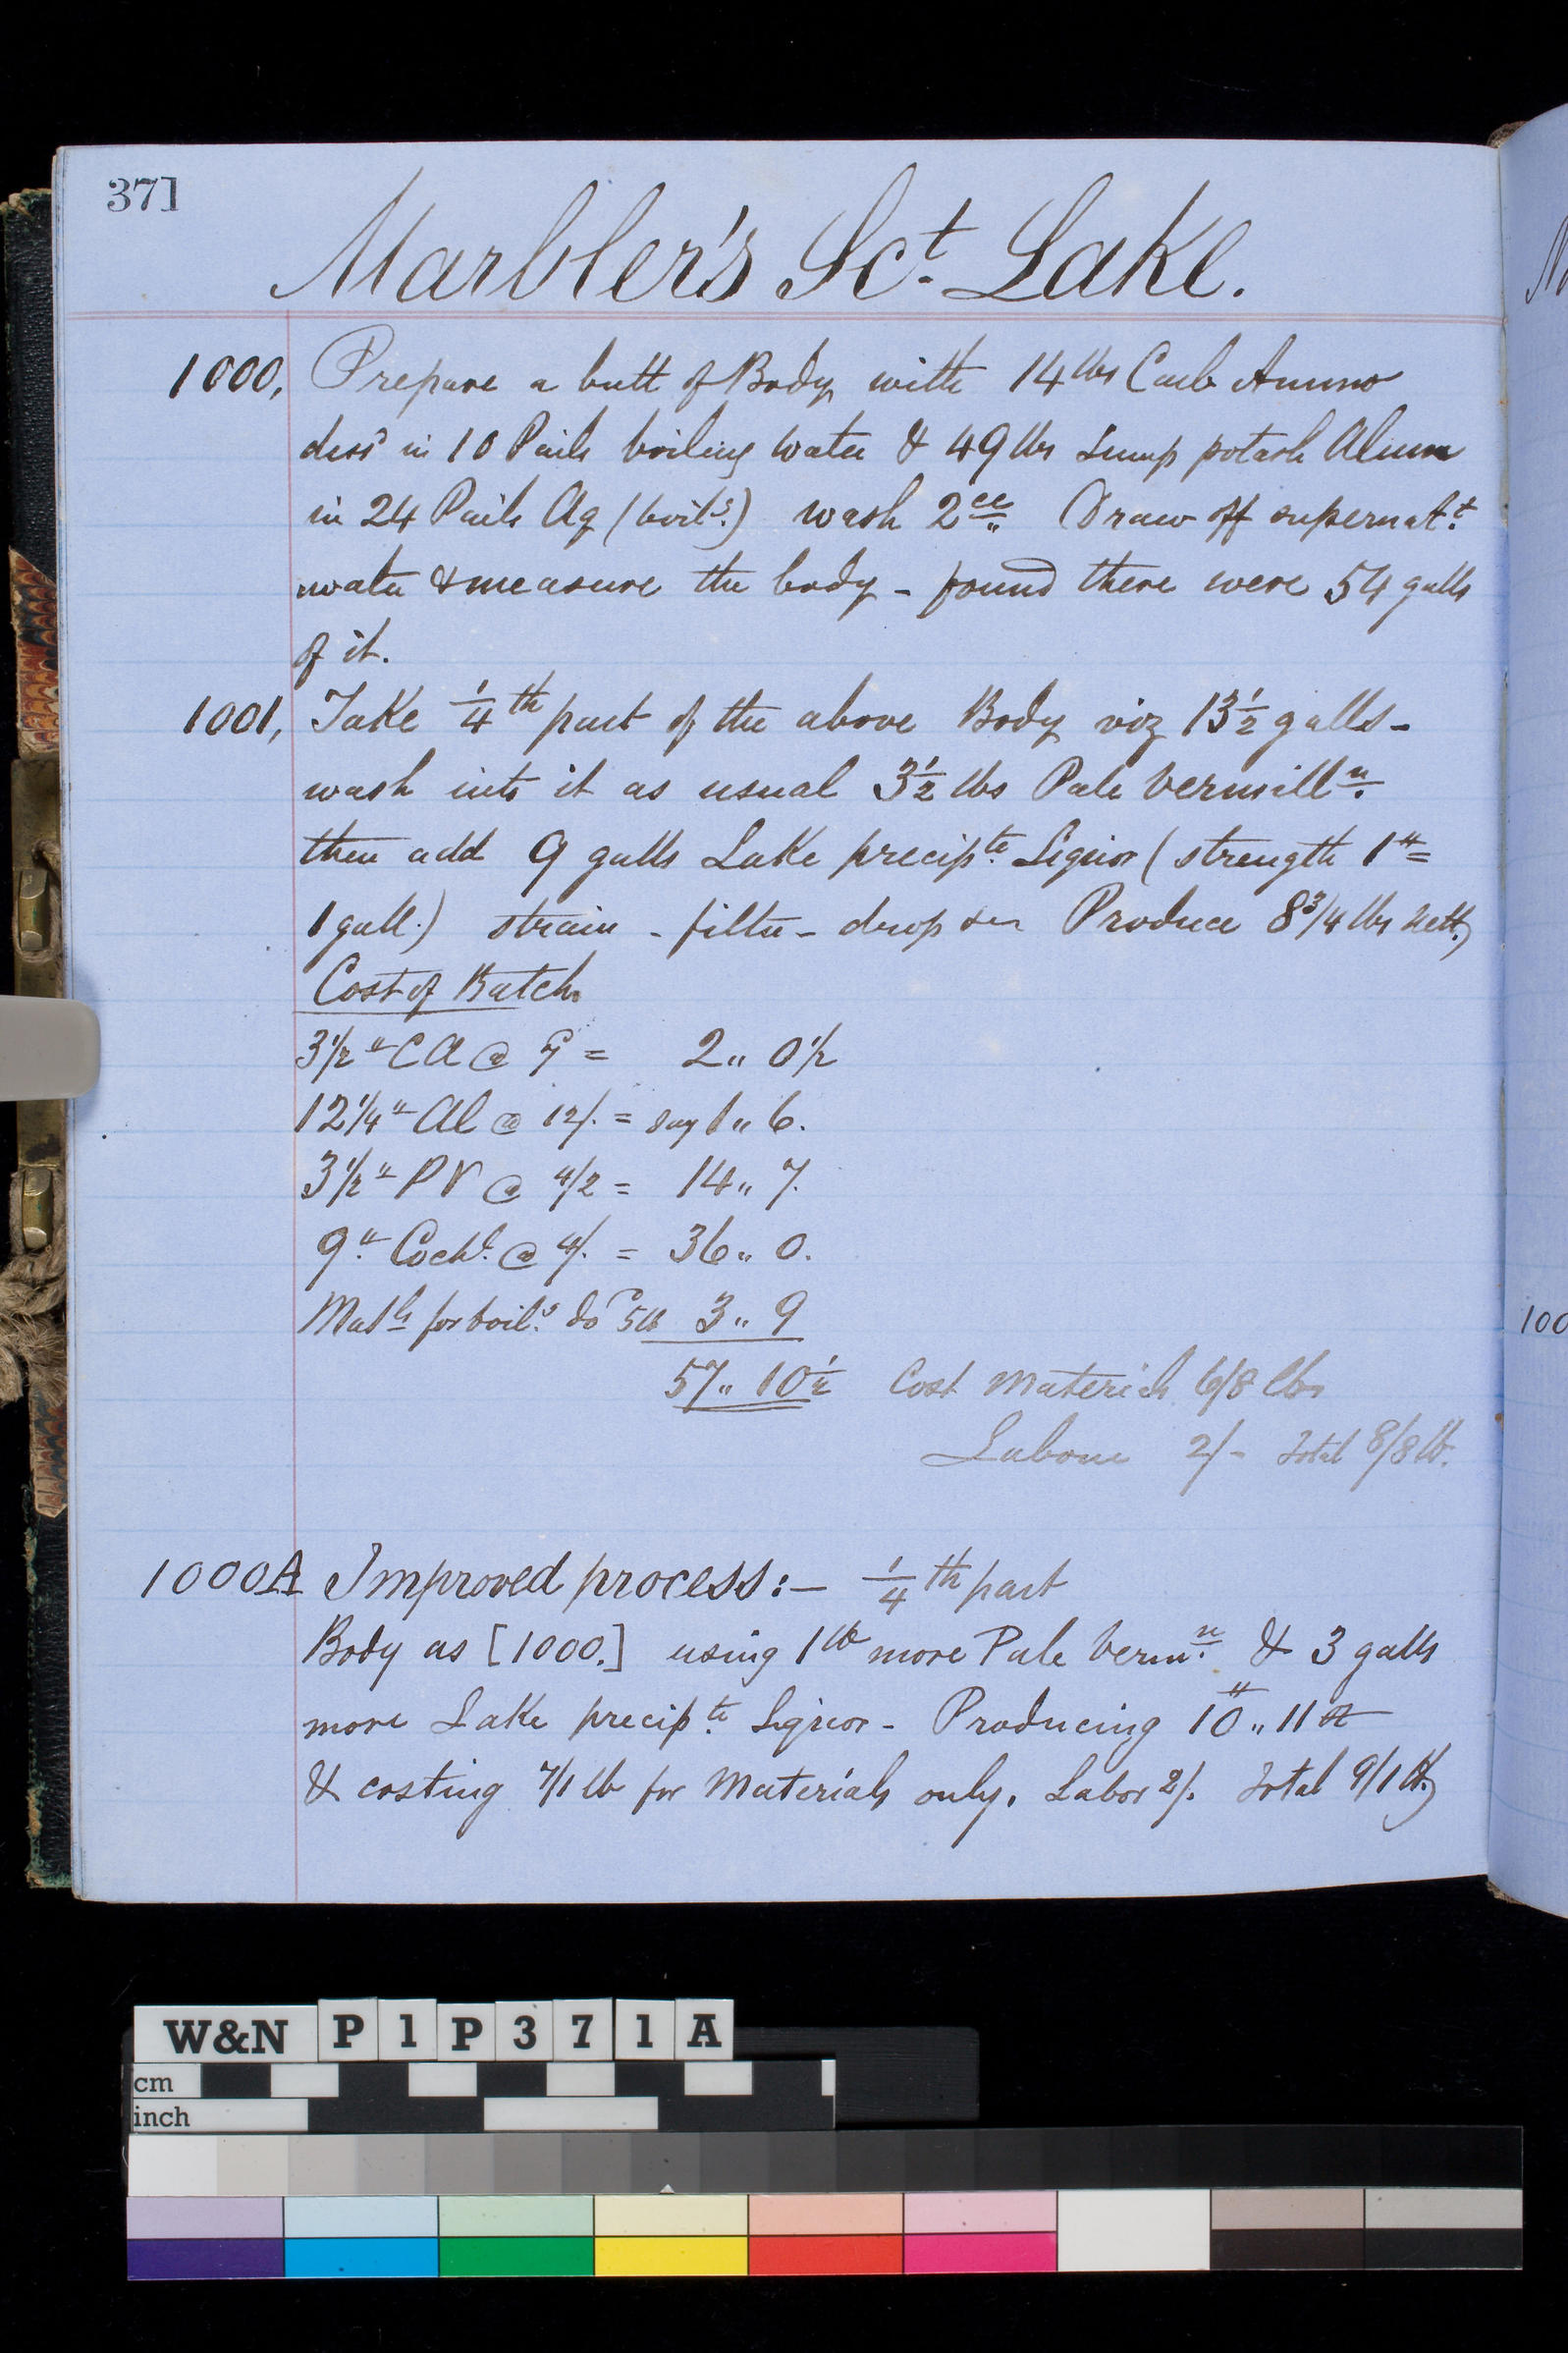 371
Marbler's Sct. Lake.
1000, Prepare a butt of Body with 14 lbs Carb Ammo
dissd in 10 Pails boiling water & 49 lbs Lump potash Alum
in 24 Pails Aq (boilg.) wash 2ce. Draw off supernatt.
water & measure the body - found there were 54 galls
of it.
1001, Take 1/4th part of the above Body viz 13 1/2 galls -
wash into it as usual 3 1/2 lbs Pale Vermilln.
then add 9 galls Lake precipte. Liquor (strength 1 lb =
1 gall.) strain - filter - drop Produce 8 3/4 lbs nett,
Cost of Batch.
3 1/2 " CA @ 7 = 2 " 0 1/2
12 1/4 " Al @ 12/. = say 1 " 6.
3 1/2 " PV @ 4/2 = 14 " 7.
9 " Cochl. @ 4/. = 36 " 0.
Matls for boilg. do 5d 3 " 9
57 " 10 1/2 Cost Materials 6/8 lb
Labour 2/- Total 8/8 lb.
1000A Improved process:- 1/4th part
Body as [1000.] using 1 lb more Pale Vermn. & 3 galls
more Lake precipte. Liquor - Producing 10 " 11 oz
& costing 7/1 lb for Materials only. Labor 2/. Total 9/1 lb,
100
W&N P1P371A
cm
inch